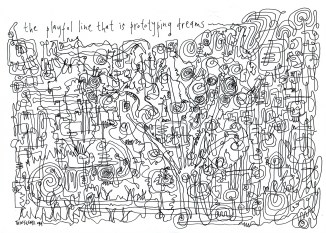 the playful line that is prototyping dreams